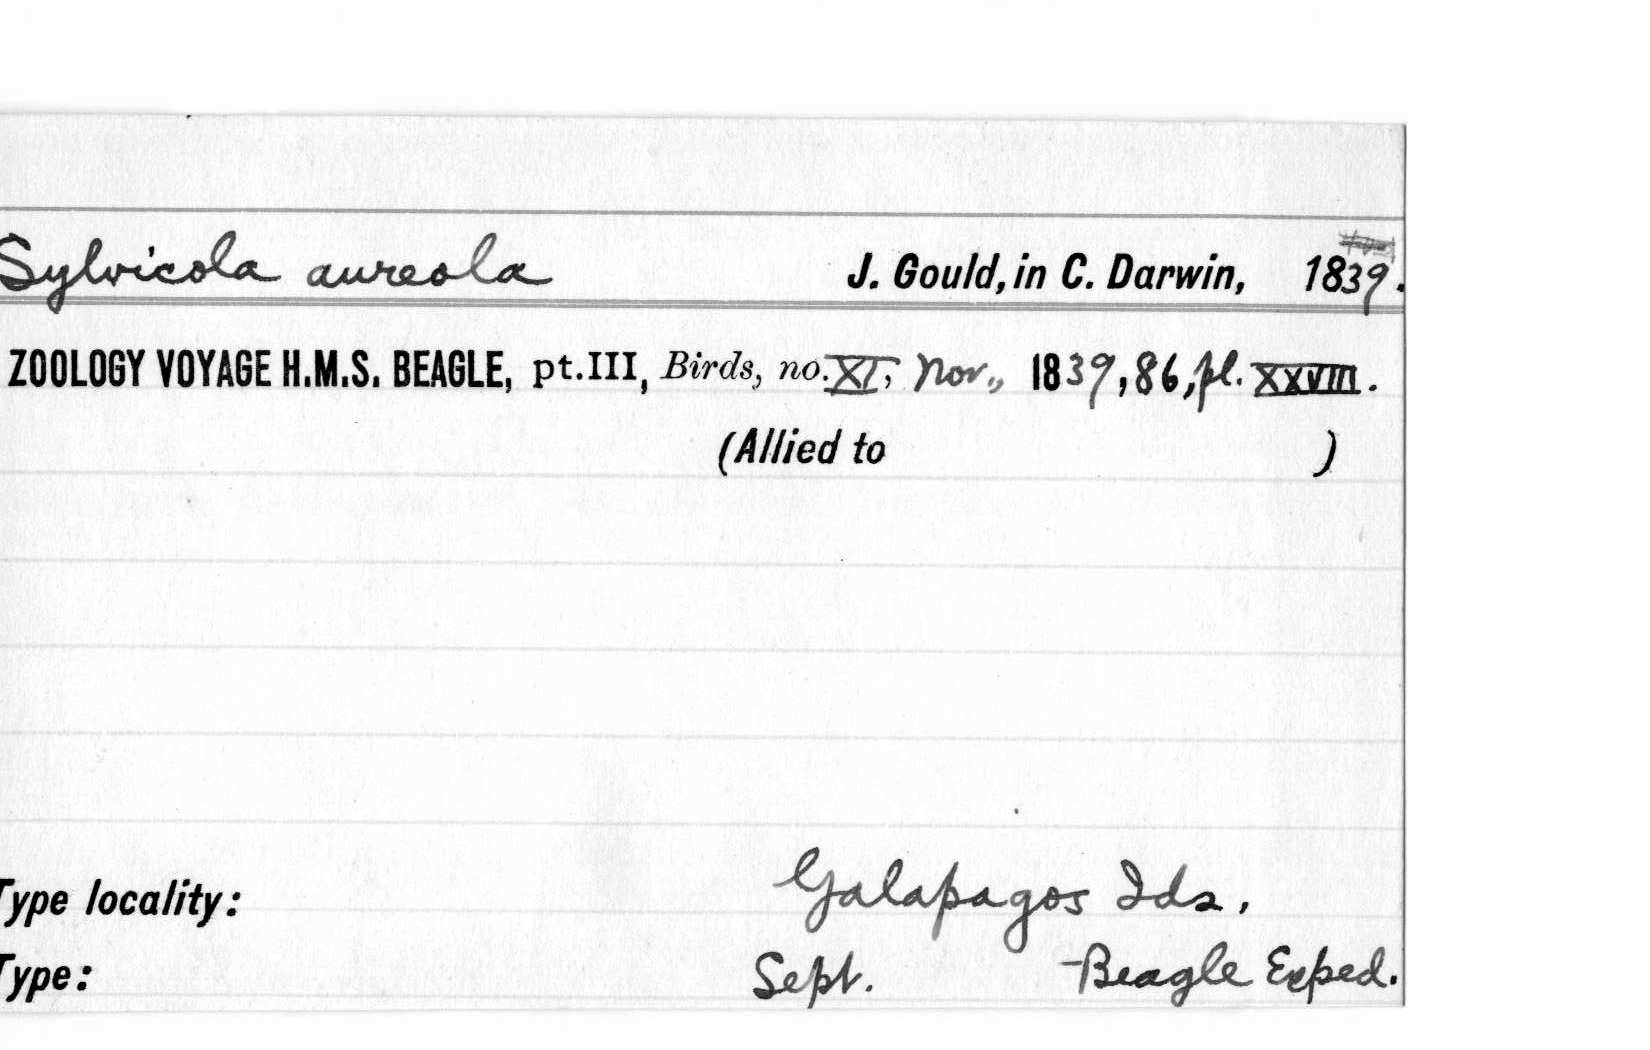 Sylvicola aureola J. Gould, in C. Darwin, 1839.
ZOOLOGY VOYAGE H.M.S. BEAGLE, pt.III, Birds, no. XI, Nov., 1839, 86, pl. XXVIII.
(Allied to )
Type locality: Galapagos Ids.
Type: Sept. Beagle Exped.